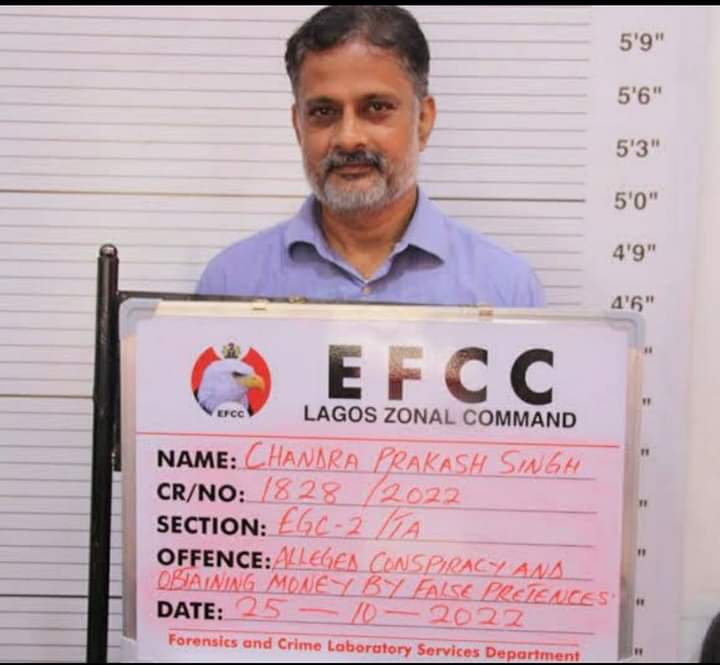 5'9"
5'6"
5'3"
5'0"
4'9"
4'6"
EFCC
EFCC
LAGOS ZONAL COMMAND
NAME: CHANDRA PRAKASH SINGH
CR/NO: 1828 /2022
SECTION: EGC-2 /TA
OFFENCE: ALLEGED CONSPIRACY AND
OBTAINING MONEY BY FALSE PRETENCES
DATE: 25 — 10 — 2022
Forensics and Crime Laboratory Services Department